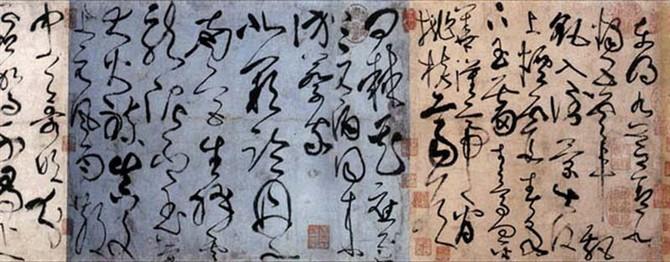 東明九芝蓋北
燭五雲車飄
飖入倒景出沒
上煙霞春泉
下玉霤青鳥向金
華漢帝看
桃核齊侯
問棘花應逐
上元酒同來
訪蔡家
北闕臨丹水
南宮生絳雲
龍泥印玉簡
大火練真文
上元風雨散
中天歌吹分